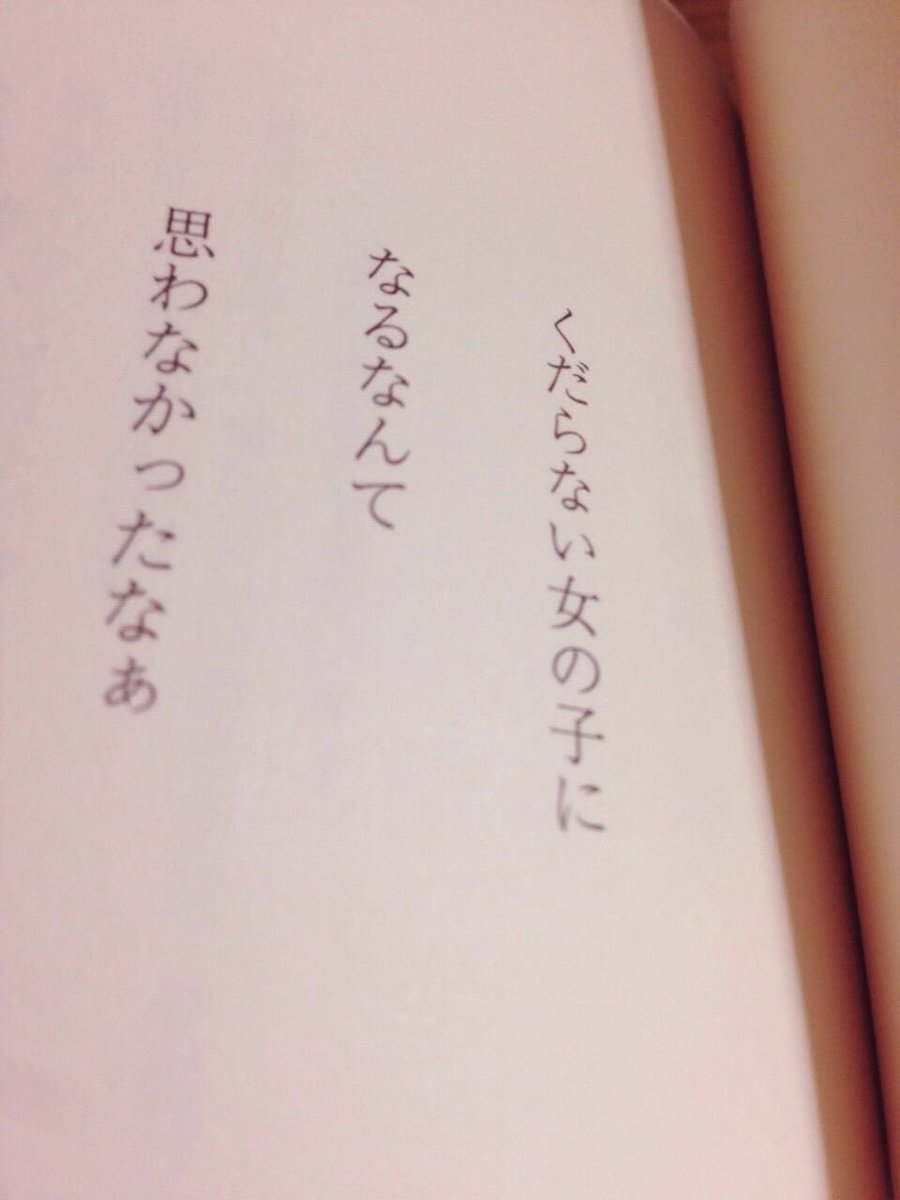 くだらない女の子に
なるなんて
思わなかったなぁ